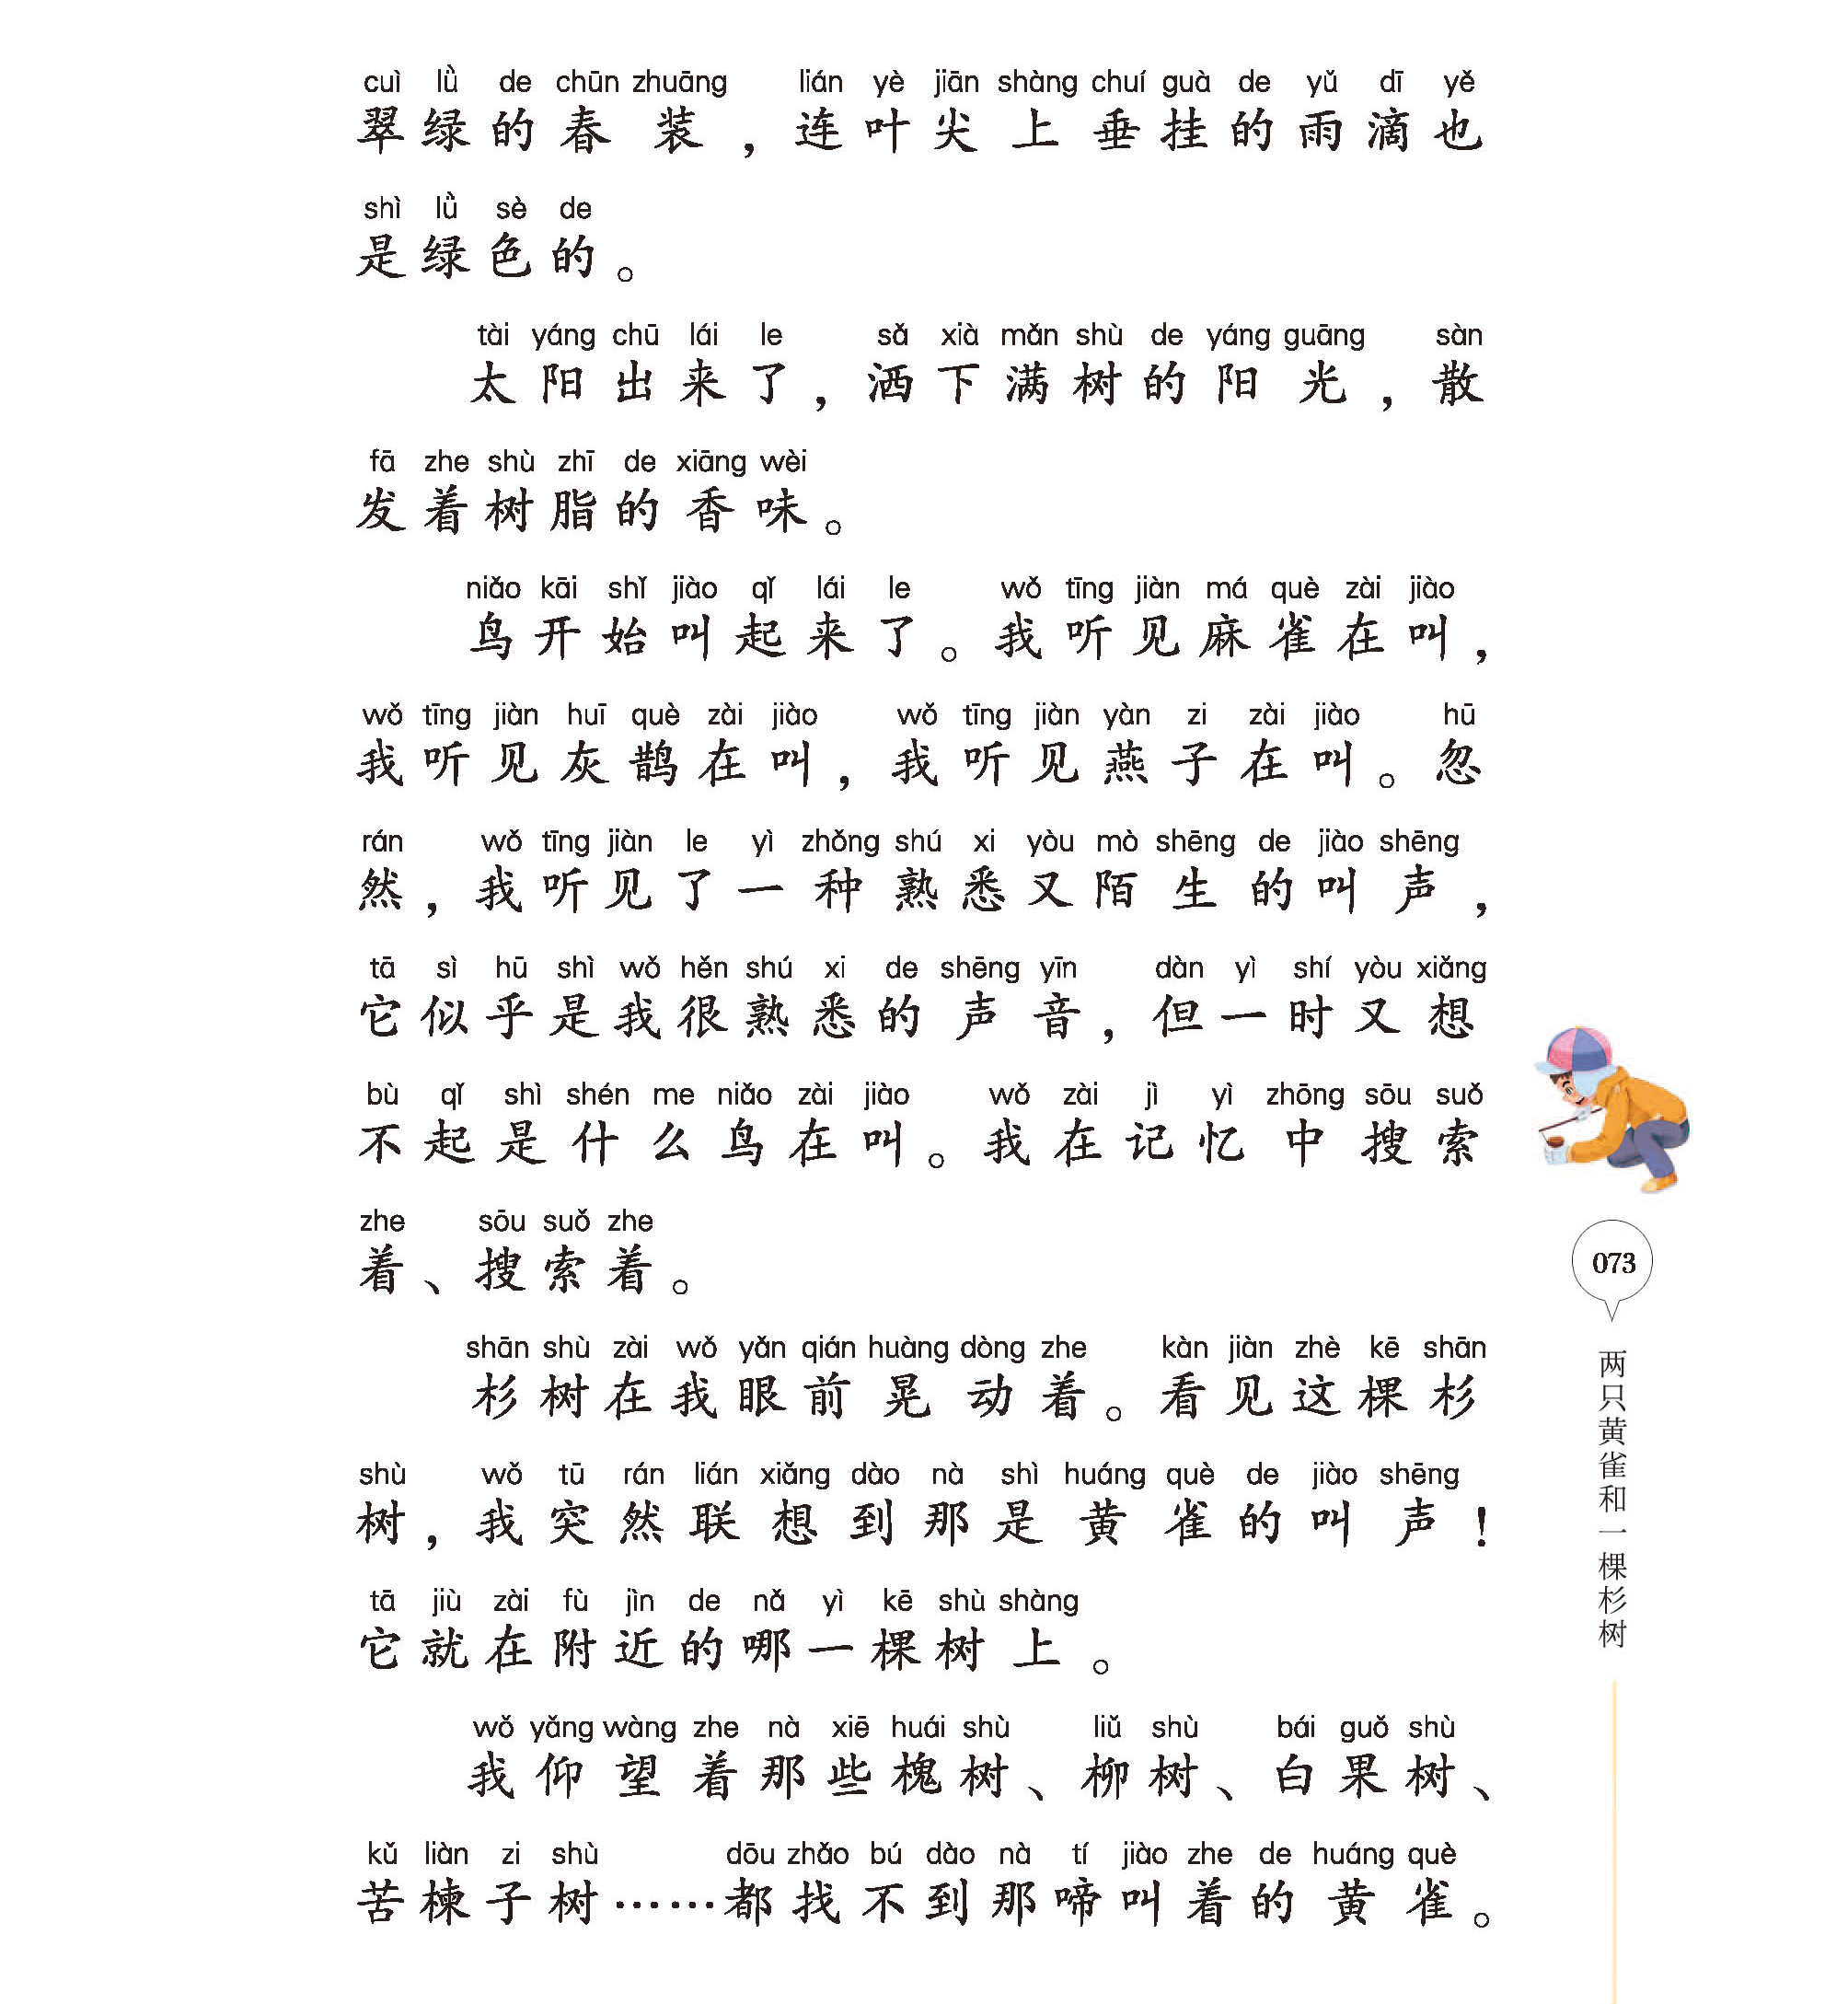 cuì lǜ de chūn zhuāng lián yè jiān shàng chuí guà de yǔ dī yě
翠绿的春装，连叶尖上垂挂的雨滴也
shì lǜ sè de
是绿色的。
tài yáng chū lái le sǎ xià mǎn shù de yáng guāng sàn
太阳出来了，洒下满树的阳光，散
fā zhe shù zhī de xiāng wèi
发着树脂的香味。
niǎo kāi shǐ jiào qǐ lái le wǒ tīng jiàn má què zài jiào
鸟开始叫起来了。我听见麻雀在叫，
wǒ tīng jiàn huī què zài jiào wǒ tīng jiàn yàn zi zài jiào hū
我听见灰鹊在叫，我听见燕子在叫。忽
rán wǒ tīng jiàn le yì zhǒng shú xi yòu mò shēng de jiào shēng
然，我听见了一种熟悉又陌生的叫声，
tā sì hū shì wǒ hěn shú xi de shēng yīn dàn yì shí yòu xiǎng
它似乎是我很熟悉的声音，但一时又想
bù qǐ shì shén me niǎo zài jiào wǒ zài jì yì zhōng sōu suǒ
不起是什么鸟在叫。我在记忆中搜索
zhe sōu suǒ zhe
着、搜索着。
shān shù zài wǒ yǎn qián huàng dòng zhe kàn jiàn zhè kē shān
杉树在我眼前晃动着。看见这棵杉
shù wǒ tū rán lián xiǎng dào nà shì huáng què de jiào shēng
树，我突然联想到那是黄雀的叫声！
tā jiù zài fù jìn de nǎ yì kē shù shàng
它就在附近的哪一棵树上。
wǒ yǎng wàng zhe nà xiē huái shù liǔ shù bái guǒ shù
我仰望着那些槐树、柳树、白果树、
kǔ liàn zi shù dōu zhǎo bú dào nà tí jiào zhe de huáng què
苦楝子树……都找不到那啼叫着的黄雀。
073
两只黄雀和一棵杉树